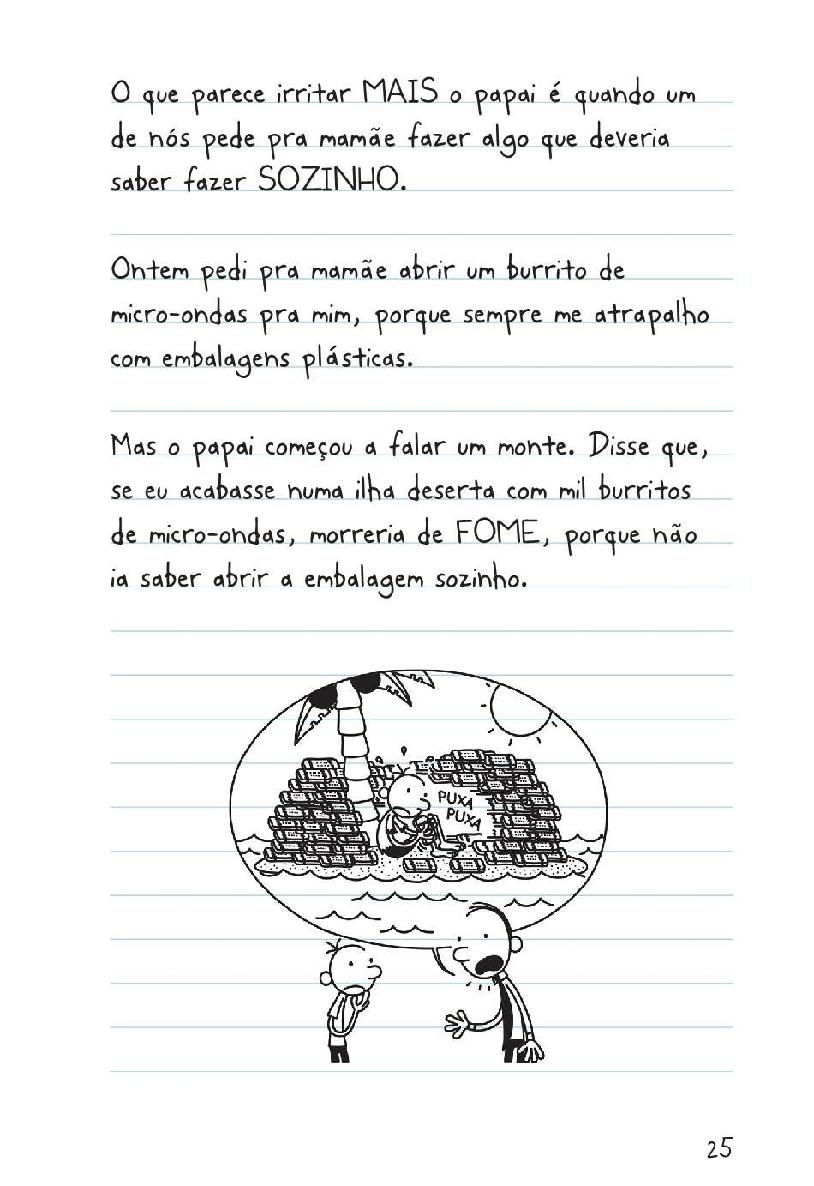 O que parece irritar MAIS o papai é quando um
de nós pede pra mamãe fazer algo que deveria
saber fazer SOZINHO.
Ontem pedi pra mamãe abrir um burrito de
micro-ondas pra mim, porque sempre me atrapalho
com embalagens plásticas.
Mas o papai começou a falar um monte. Disse que,
se eu acabasse numa ilha deserta com mil burritos
de micro-ondas, morreria de FOME, porque não
ia saber abrir a embalagem sozinho.
PUXA
PUXA
25